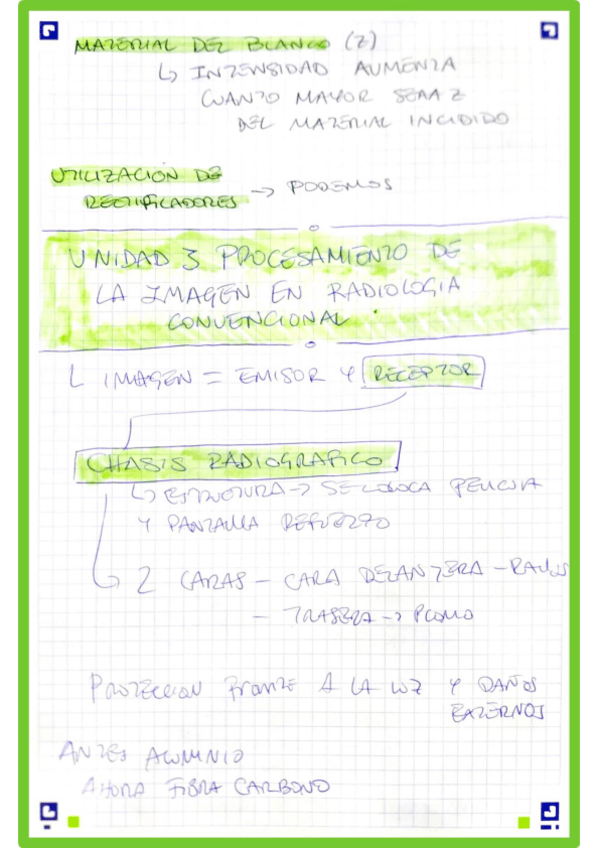 MATERIAL DEL BLANCO (Z)
↳ INTENSIDAD AUMENTA
CUANTO MAYOR SEAA Z
DEL MATERIAL INCIDIDO
UTILIZACIÓN DE
RECTIFICADORES → PODEMOS
UNIDAD 3 PROCESAMIENTO DE
LA IMAGEN EN RADIOLOGIA
CONVENCIONAL
L IMAGEN = EMISOR Y RECEPTOR
CHASIS RADIOGRAFICO
↳ ESTRUCTURA → SE COLOCA PELICULA
Y PANTALLA REFUERZO
↳ 2 CARAS - CARA DELANTERA - RAYOS
- TRASERA → PLOMO
PROTECCION FRONTE A LA LUZ Y DAÑOS
EXTERNOS
ANTES ALUMINIO
AHORA FIBRA CARBONO